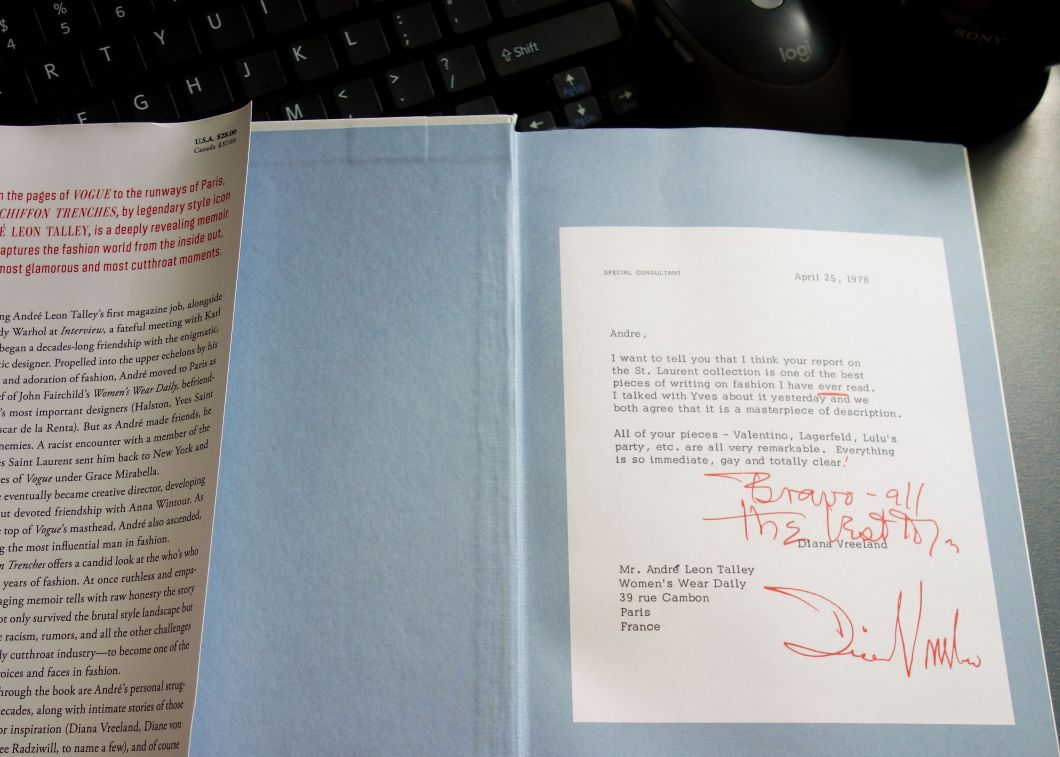 $
4
%
5
R
T
Y
U
I
F
G
H
J
K
L
:
;
"
M
<
>
?
/
Shift
PgUp
PgDn
End
logi
SONY
U.S.A. $28.00
Canada $37.00
the pages of VOGUE to the runways of Paris,
CHIFFON TRENCHES, by legendary style icon
LEON TALLEY, is a deeply revealing memoir
captures the fashion world from the inside out,
most glamorous and most cutthroat moments.
André Leon Talley's first magazine job, alongside
Warhol at Interview, a fateful meeting with Karl
began a decades-long friendship with the enigmatic,
designer. Propelled into the upper echelons by his
and adoration of fashion, André moved to Paris as
of John Fairchild's Women's Wear Daily, befriend-
's most important designers (Halston, Yves Saint
de la Renta). But as André made friends, he
enemies. A racist encounter with a member of the
Saint Laurent sent him back to New York and
of Vogue under Grace Mirabella.
eventually became creative director, developing
but devoted friendship with Anna Wintour. As
top of Vogue's masthead, André also ascended,
the most influential man in fashion.
Trenches offers a candid look at the who's who
years of fashion. At once ruthless and empa-
memoir tells with raw honesty the story
not only survived the brutal style landscape but
racism, rumors, and all the other challenges
cutthroat industry—to become one of the
voices and faces in fashion.
through the book are André's personal strug-
decades, along with intimate stories of those
for inspiration (Diana Vreeland, Diane von
Radziwill, to name a few), and of course
SPECIAL CONSULTANT
April 25, 1978
Andre,
I want to tell you that I think your report on
the St. Laurent collection is one of the best
pieces of writing on fashion I have ever read.
I talked with Yves about it yesterday and we
both agree that it is a masterpiece of description.
All of your pieces - Valentino, Lagerfeld, Lulu's
party, etc. are all very remarkable. Everything
is so immediate, gay and totally clear!
Bravo - all
the best to
Diana Vreeland
Mr. André Leon Talley
Women's Wear Daily
39 rue Cambon
Paris
France